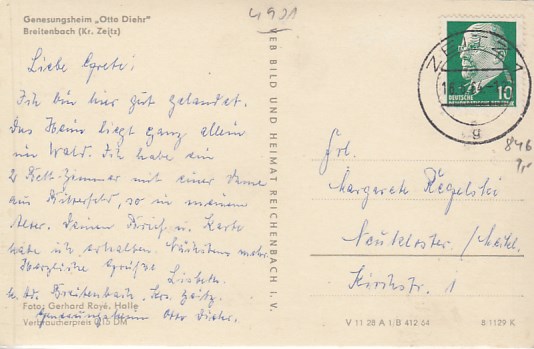 4921
Genesungsheim „Otto Diehr"
Breitenbach (Kr. Zeitz)
Liebe Grete!
Ich bin hier gut gelandet.
Das Heim liegt ganz allein
im Wald. Ich habe ein
2 Bett-Zimmer mit einer Dame
aus Bitterfeld, so in meinem
Alter. Deinen Brief u. Karte
habe ich erhalten. Nächstens mehr
Herzliche Grüsse Lisbeth
Breitenbach, Krs. Zeitz.
Genesungsheim Otto Diehr.
Foto: Gerhard Royé, Halle
Verbraucherpreis 0,15 DM
VEB BILD UND HEIMAT REICHENBACH I. V.
ZEITZ 1
64
g
10
DEUTSCHE
DEMOKRATISCHE REPUBLIK
846
Frl.
Margarete Regelski
Neukloster / Meckl.
Kirchstr. 1
V 11 28 A 1/B 412 64
8/1129 K